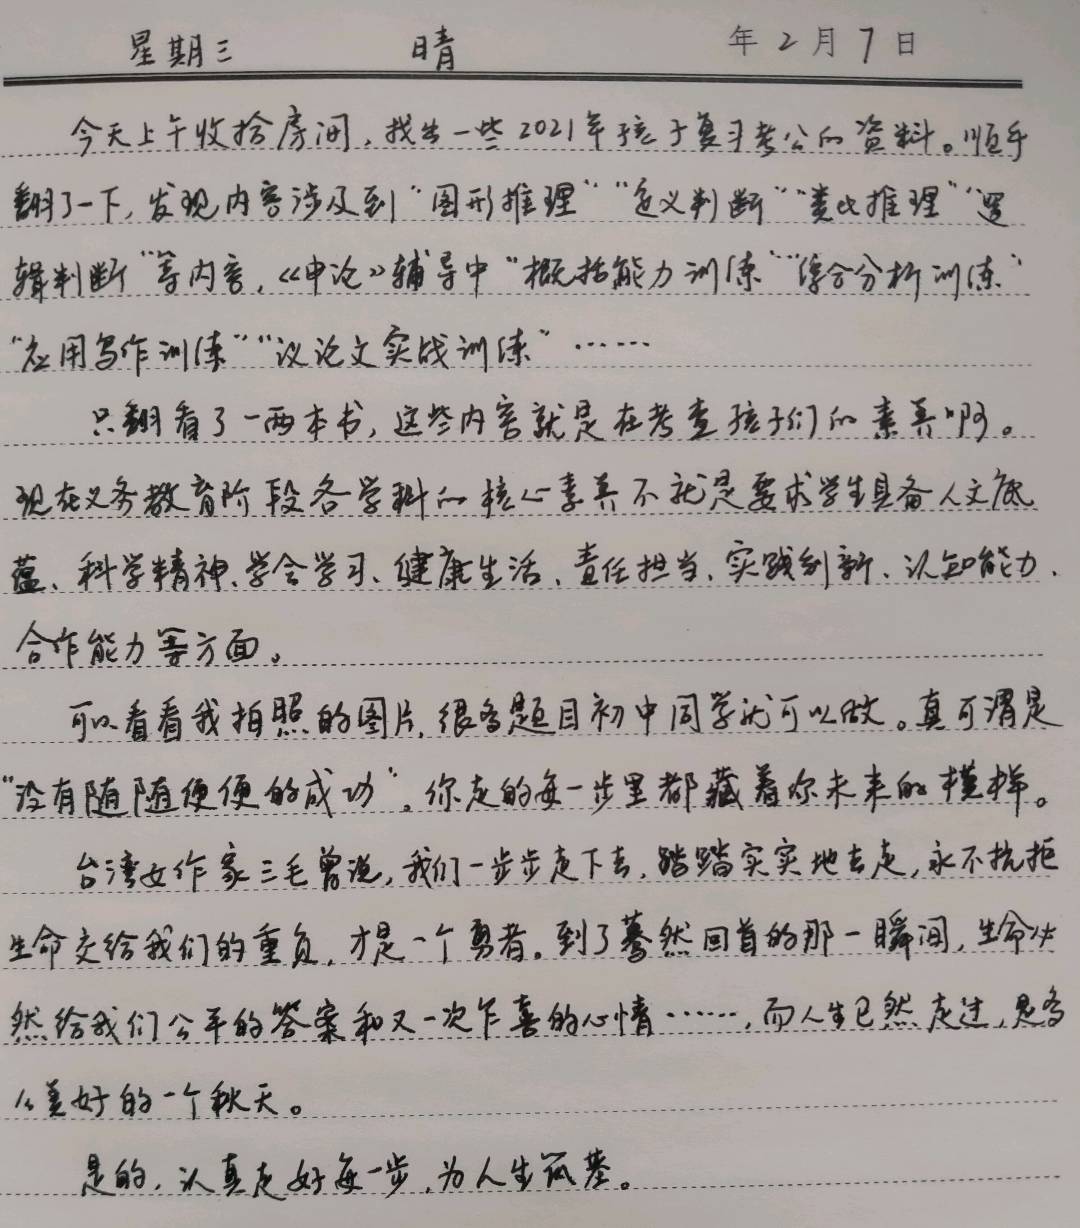 星期三 晴 年2月7日
今天上午收拾房间，找出一些2021年孩子复习考公的资料。顺手
翻了一下，发现内容涉及到“图形推理”“定义判断”“类比推理”“逻
辑判断”等内容，《申论》辅导中“概括能力训练”“综合分析训练”
“应用写作训练”“议论文实战训练”……
只翻看了一两本书，这些内容就是在考查孩子们的素养啊。
现在义务教育阶段各学科的核心素养不就是要求学生具备人文底
蕴、科学精神、学会学习、健康生活、责任担当、实践创新、认知能力、
合作能力等方面。
可以看看我拍照的图片，很多题目初中同学就可以做。真可谓是
“没有随随便便的成功”。你走的每一步里都藏着你未来的模样。
台湾女作家三毛曾说，我们一步步走下去，踏踏实实地去走，永不抗拒
生命交给我们的重负，才是一个勇者。到了蓦然回首的那一瞬间，生命必
然给我们公平的答案和又一次乍喜的心情……，而人生已然走过，是多
么美好的一个秋天。
是的，认真走好每一步，为人生筑基。